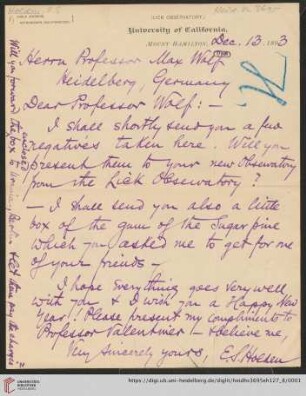 LICK OBSERVATORY
University of California.
MOUNT HAMILTON, Dec. 13. 1893
Herrn Professor Max Wolf
Heidelberg, Germany
Dear Professor Wolf: —
I shall shortly send you a few
negatives taken here. Will you
present them to your new Observatory
from the Lick Observatory?
— I shall send you also a little
box of the gum of the Sugar pine
which you asked me to get for one
of your friends —
I hope Everything goes very well
with you & I wish you a Happy New
Year! Please present my compliments to
Professor Valentiner! — & believe me,
Very Sincerely yours, E.S. Holden
Will you forward the enclosed
box to Berlin & let them pay the charges
https://digi.ub.uni-heidelberg.de/diglit/heidhs3695eh127_E/0001